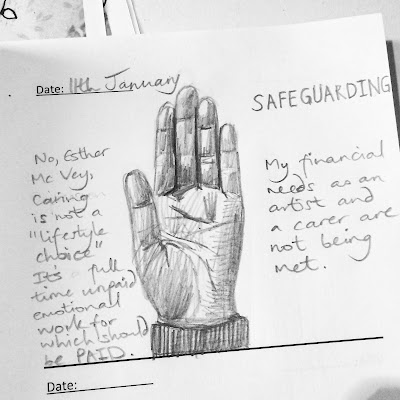 Date: 11th January
SAFEGUARDING
No, Esther
Mc Vey,
Caring
is not a
"lifestyle
choice"
It's a full
time unpaid
emotional
work for
which should
be PAID.
My financial
needs as an
artist and
a carer are
not being
met.
Date: